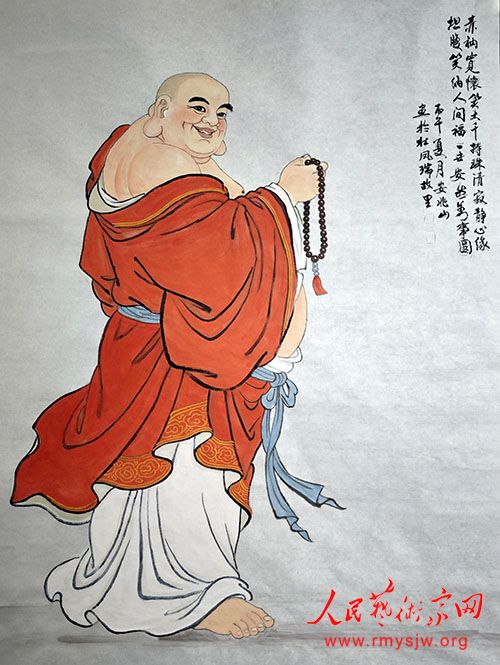 赤衲宽怀笑大千持珠清寂静心缘
坦腹笑纳人间福一世安然万事圆
丙午夏月安兆山
画於杜凤瑞故里
人民藝術宗网
www.rmysjw.org